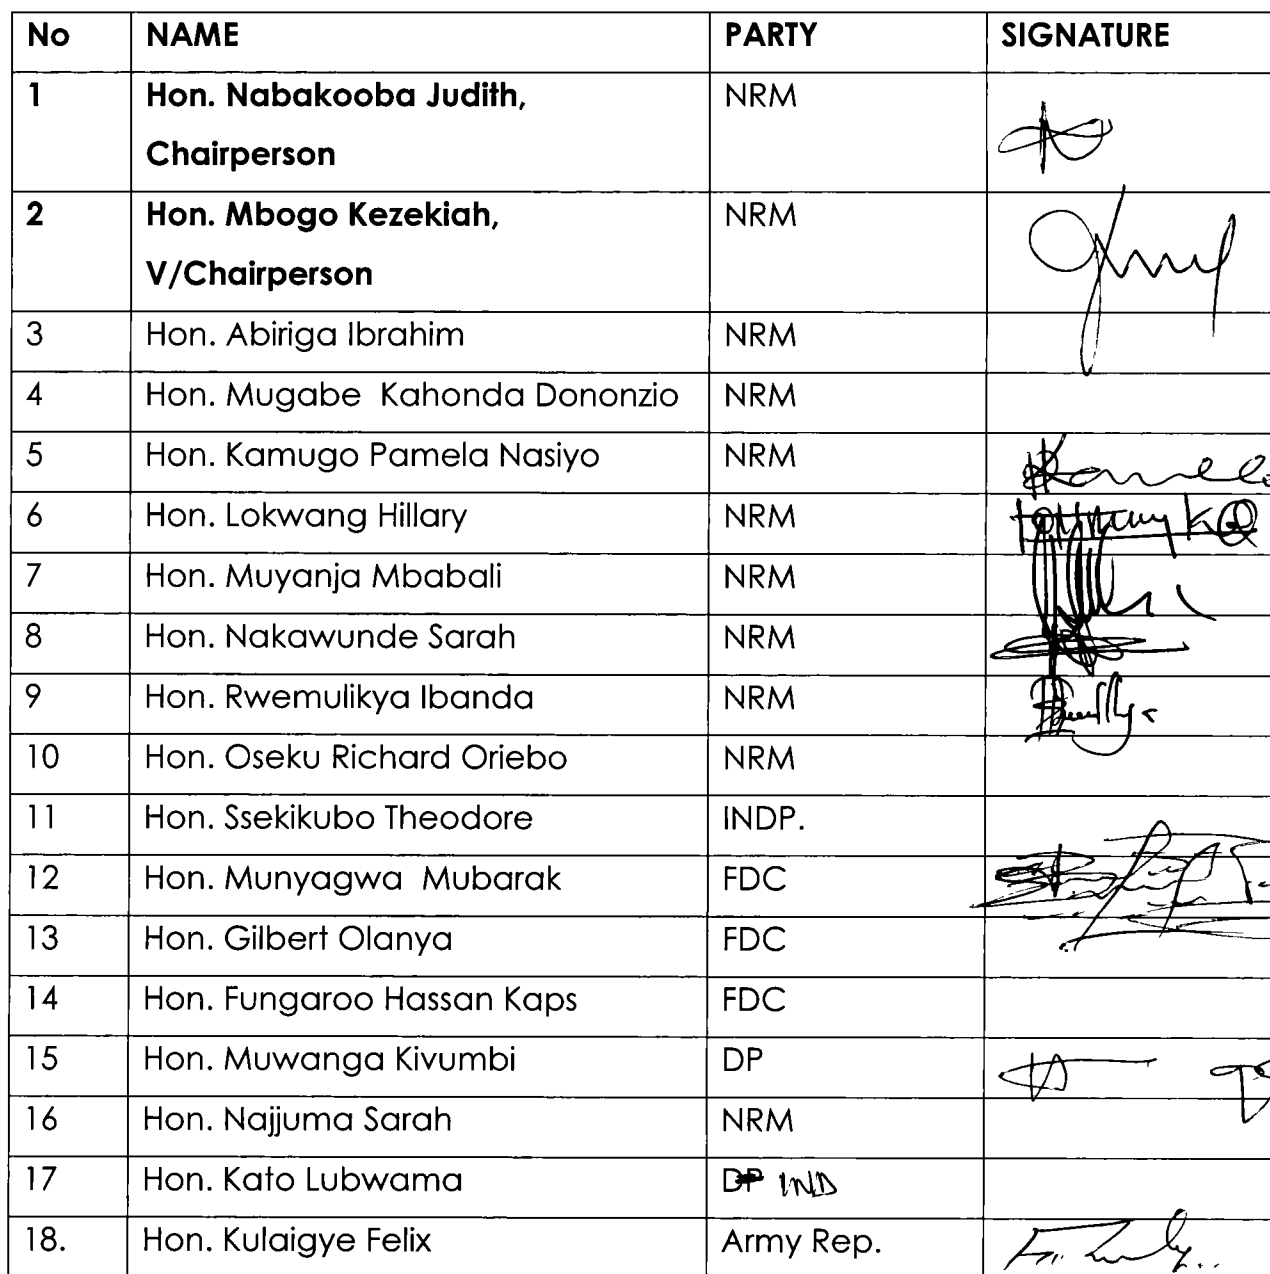 No NAME PARTY SIGNATURE
1 Hon. Nabakooba Judith, NRM
Chairperson
2 Hon. Mbogo Kezekiah, NRM
V/Chairperson
3 Hon. Abiriga Ibrahim NRM
4 Hon. Mugabe Kahonda Dononzio NRM
5 Hon. Kamugo Pamela Nasiyo NRM
6 Hon. Lokwang Hillary NRM
7 Hon. Muyanja Mbabali NRM
8 Hon. Nakawunde Sarah NRM
9 Hon. Rwemulikya Ibanda NRM
10 Hon. Oseku Richard Oriebo NRM
11 Hon. Ssekikubo Theodore INDP.
12 Hon. Munyagwa Mubarak FDC
13 Hon. Gilbert Olanya FDC
14 Hon. Fungaroo Hassan Kaps FDC
15 Hon. Muwanga Kivumbi DP
16 Hon. Najjuma Sarah NRM
17 Hon. Kato Lubwama DP IND
18. Hon. Kulaigye Felix Army Rep.